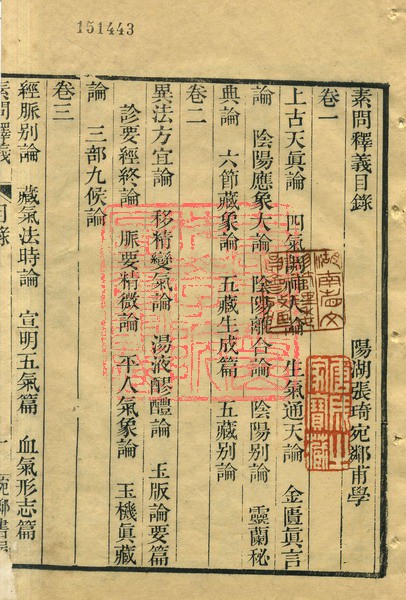 151443
素問釋義目錄 陽湖張琦宛鄰甫學
卷一
上古天眞論 四氣調神大論 生氣通天論 金匱眞言
論 陰陽應象大論 陰陽離合論 陰陽別論 靈蘭秘
典論 六節藏象論 五藏生成篇 五藏別論
卷二
異法方宜論 移精變氣論 湯液醪醴論 玉版論要篇
診要經終論 脈要精微論 平人氣象論 玉機眞藏
論 三部九候論
卷三
經脈別論 藏氣法時論 宣明五氣篇 血氣形志篇
素問釋義 目錄 一 宛鄰書